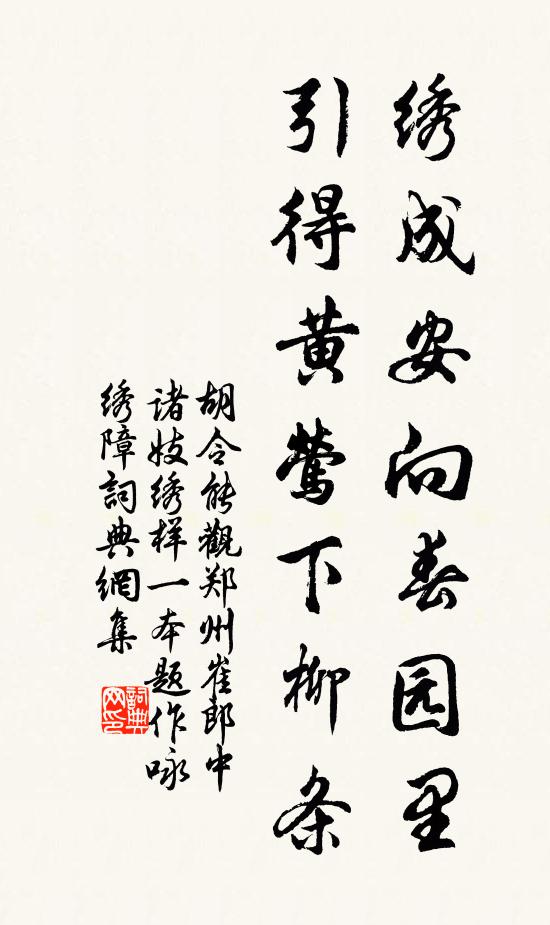 绣成安向春园里
引得黄莺下柳条
胡令能觀郑州崔郎中
诸妓绣样一本题作咏
绣障詞典網集
詞典網印